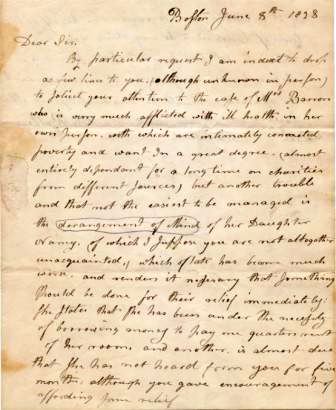 Boston June 8th 1828
Dear Sir.
By particular request I am induced to drop
a few lines to you, (although unknown in person)
to solicit your attention to the case of Mrs Barron
who is very much afflicted with ill health in her
own person. with which are intimately connected
poverty and want in a great degree. (almost
entirely dependant for a long time on charities
from different sources) but another trouble
and that not the easiest to be managed is
the derangement of Mind of her Daughter
Nancy, (of which I suppose you are not altogether
unacquainted,) which of late has become much
worse. and renders it necessary that something
should be done for their relief immediately.
She states that she has been under the necessity
of borrowing money to pay one quarters rent
of her rooms and another. is almost due
that she has not heard from you for five
months. although you gave encouragement of
affording some relief